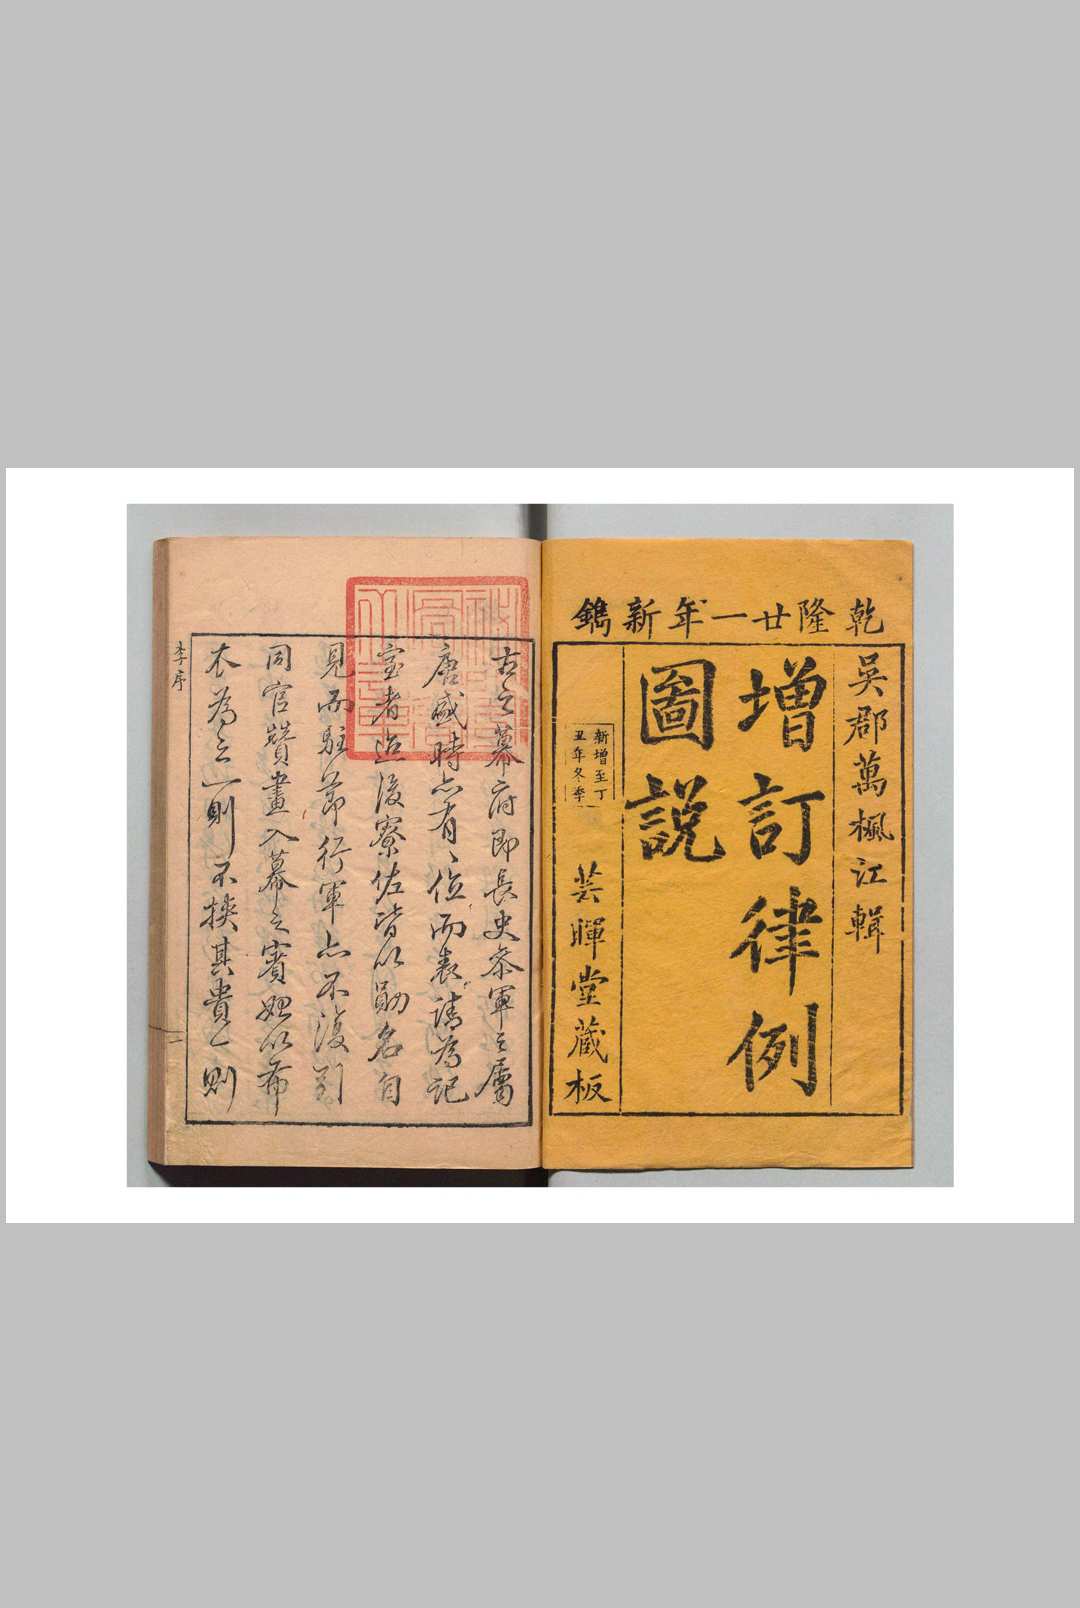 乾隆廿一年新鐫
吳郡萬楓江輯
增訂律例
圖說
新增至丁
丑年冬季
芸暉堂藏板
古之幕府即長史參軍之屬
唐盛時亦有、位而表請為記
室者迨後寮佐皆以勛名自
見而駐節行軍亦不復引
同官贊畫入幕之賓
不為之一則不挾其貴一則
李序
一